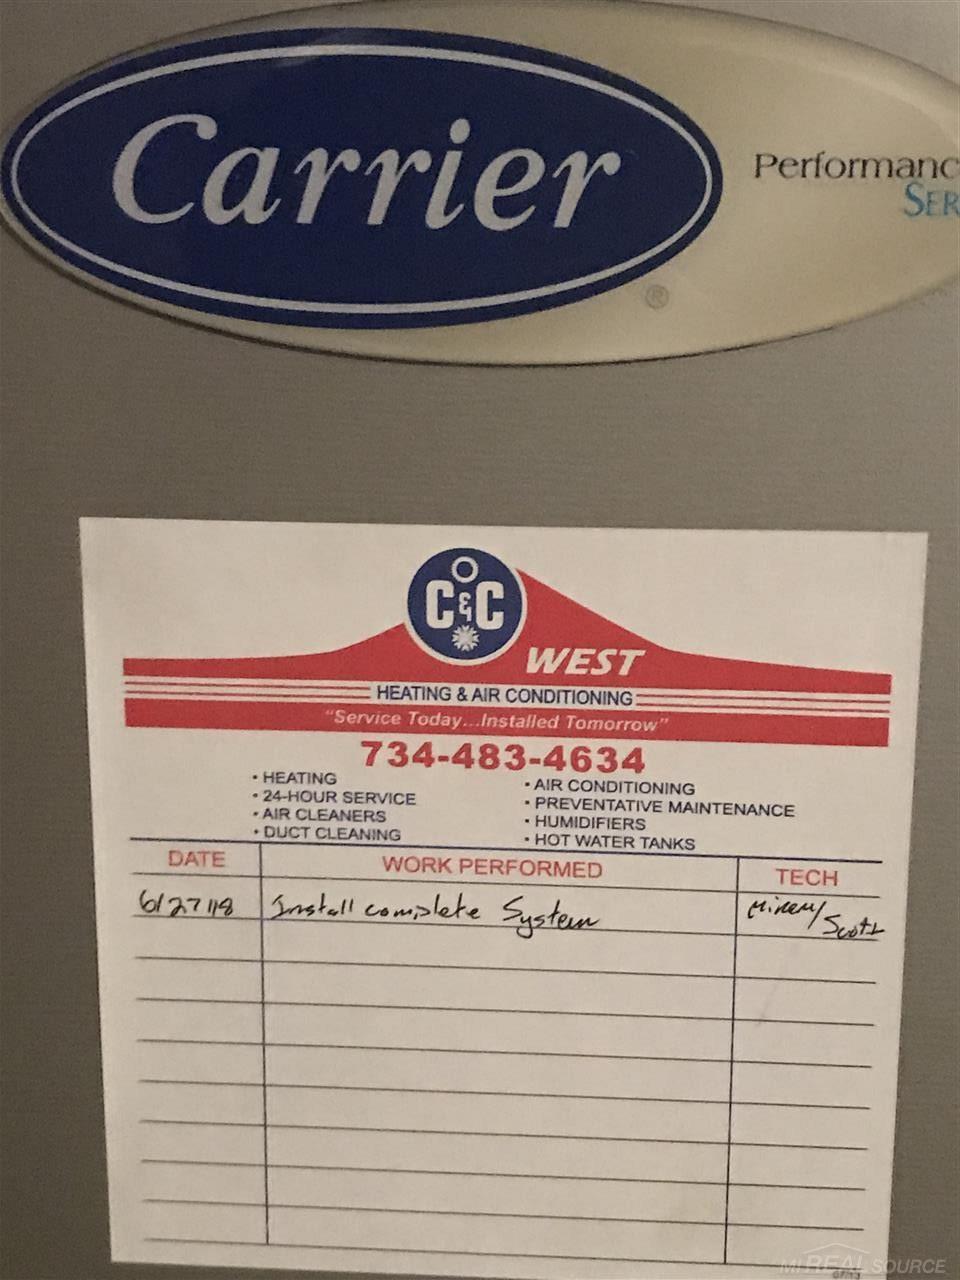 Carrier
®
Performanc
SER
C&C
WEST
HEATING & AIR CONDITIONING
"Service Today...Installed Tomorrow"
734-483-4634
• HEATING
• 24-HOUR SERVICE
• AIR CLEANERS
• DUCT CLEANING
• AIR CONDITIONING
• PREVENTATIVE MAINTENANCE
• HUMIDIFIERS
• HOT WATER TANKS
DATE WORK PERFORMED TECH
6/27/18 Install complete System
Scott
Mi REAL SOURCE